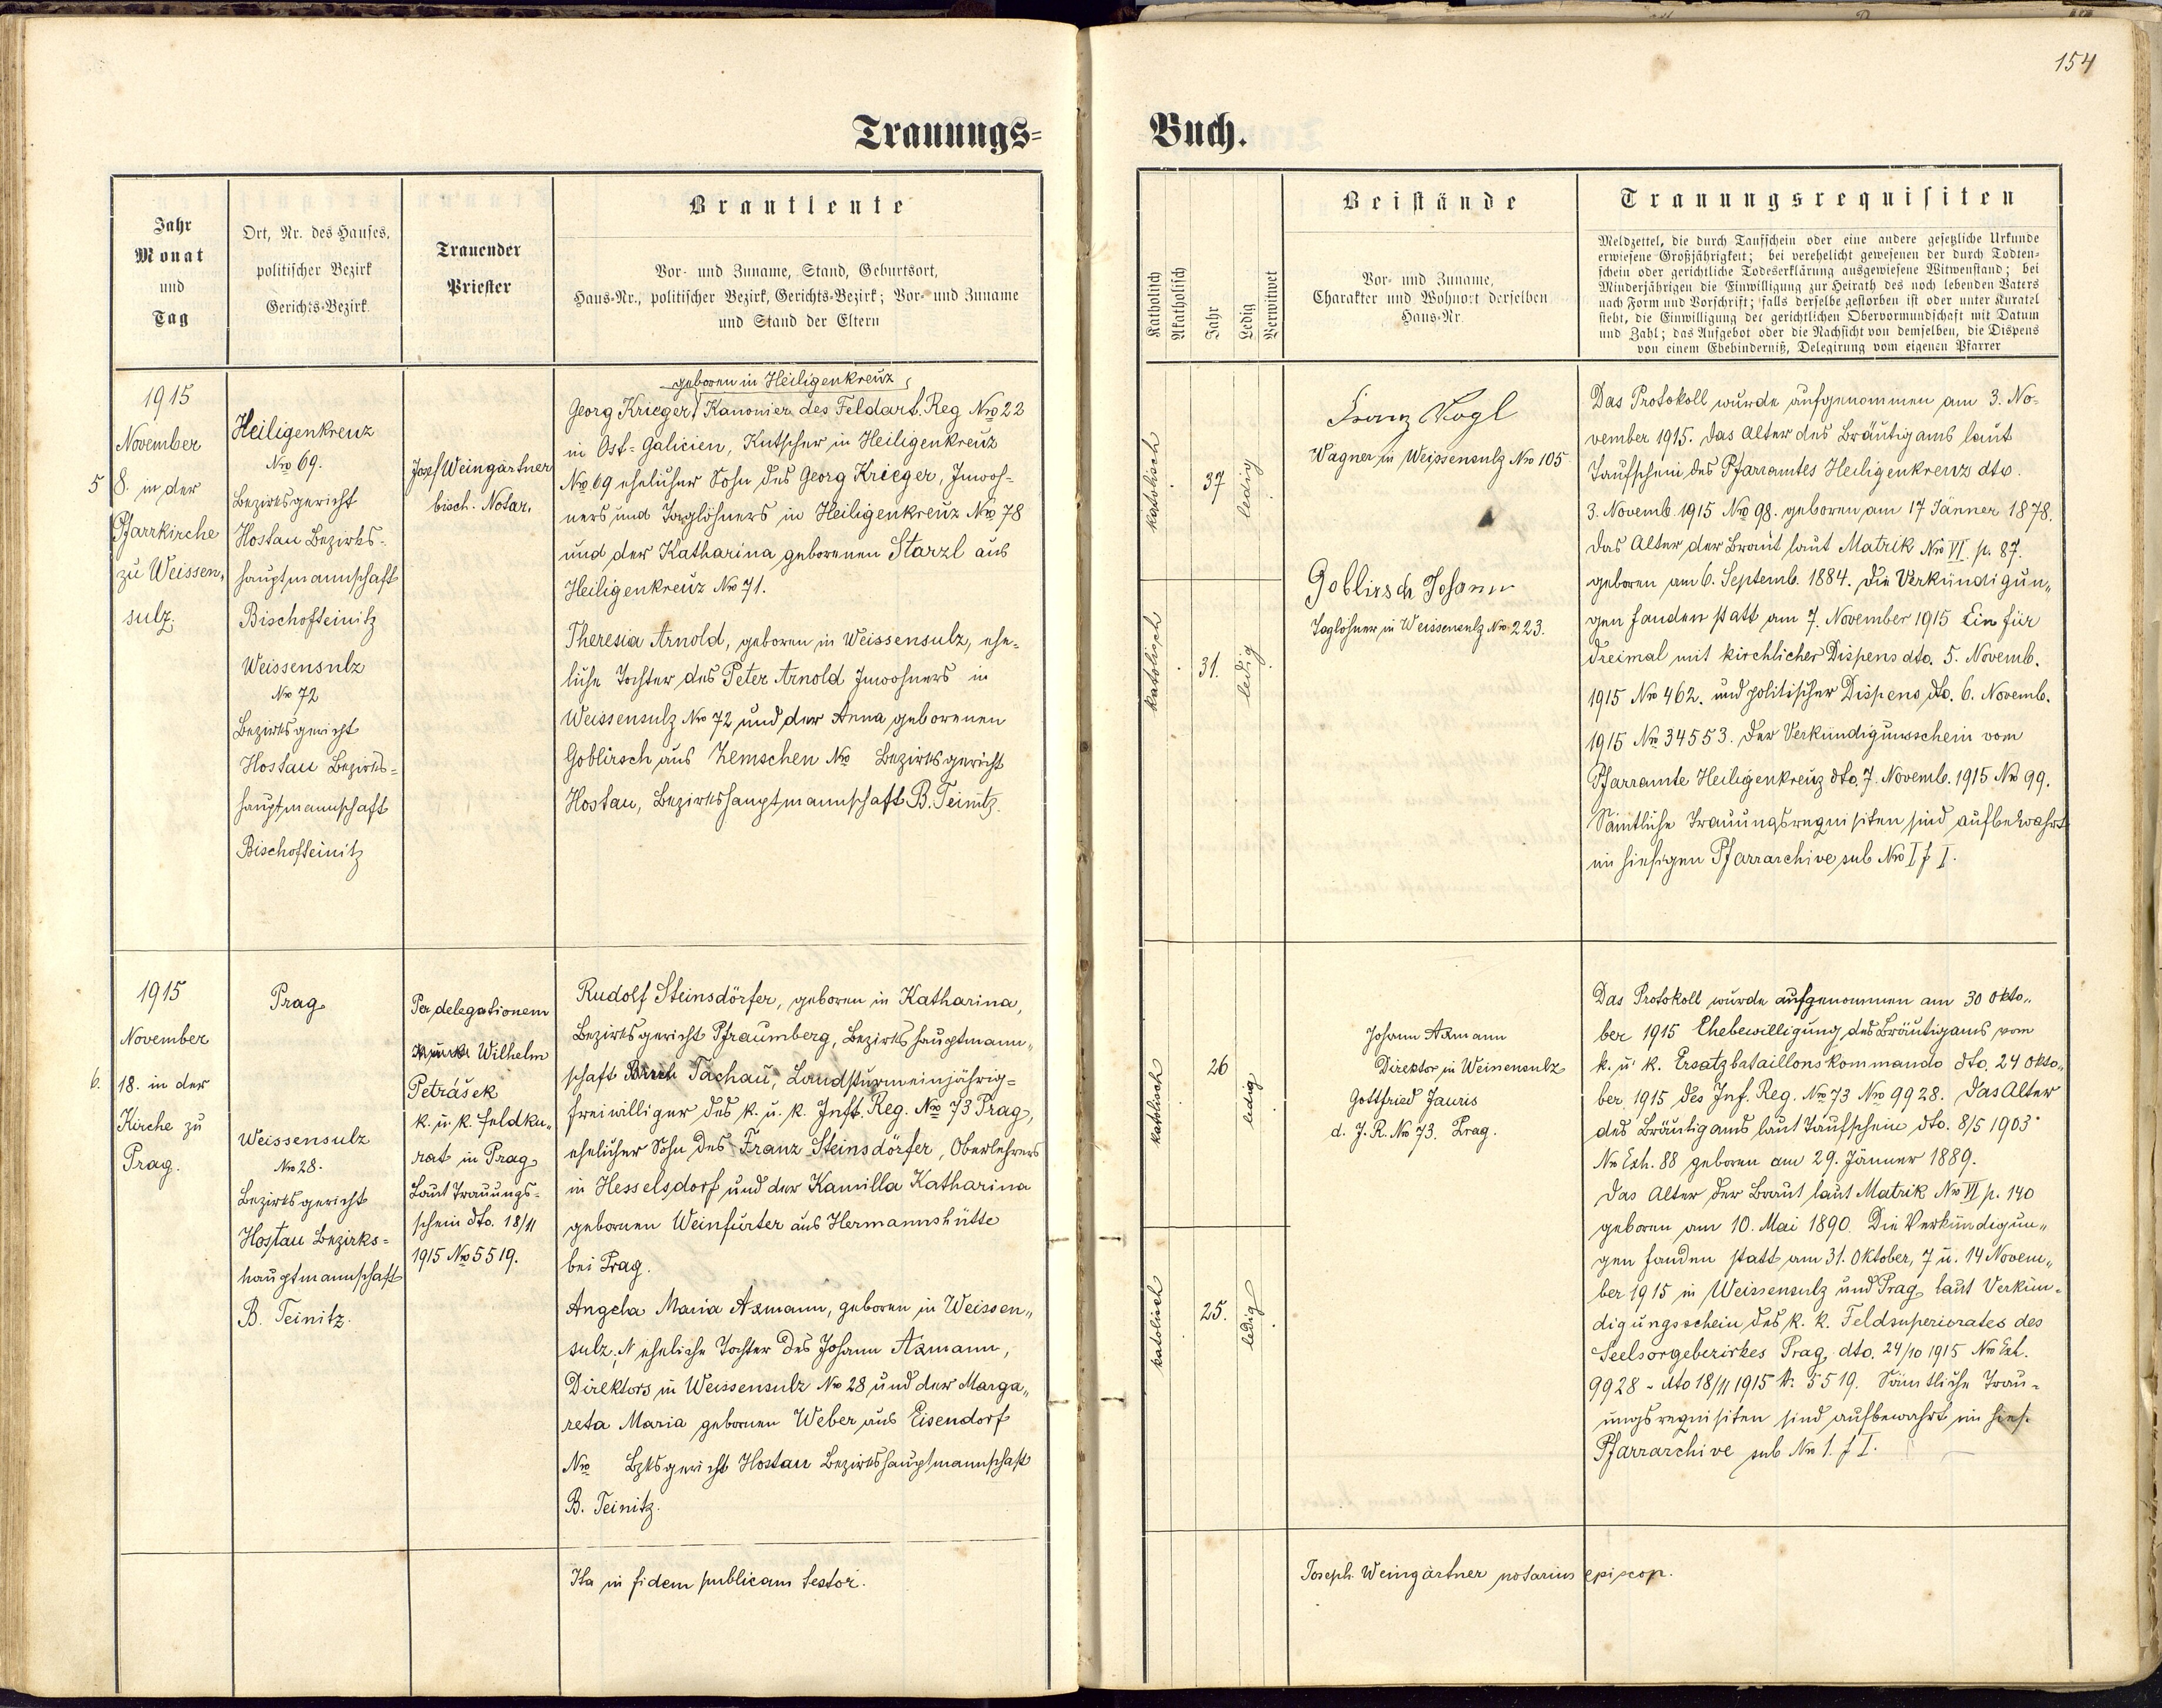 154
Trauungs-
Buch.
Jahr
Monat
und
Tag
Ort, Nr. des Hauses,
politischer Bezirk
Gerichts-Bezirk.
Trauender
Priester
Brautleute
Vor- und Zuname, Stand, Geburtsort,
Haus-Nr., politischer Bezirk, Gerichts-Bezirk; Vor- und Zuname
und Stand der Eltern
Katholisch
Akatholisch
Jahr
Ledig
Verwitwet
Beistände
Vor- und Zuname,
Charakter und Wohnort derselben
Haus-Nr.
Trauungsrequisiten
Meldzettel, die durch Taufschein oder eine andere gesetzliche Urkunde
erwiesene Großjährigkeit; bei verehelicht gewesenen der durch Todten-
schein oder gerichtliche Todeserklärung ausgewiesene Witwenstand; bei
Minderjährigen die Einwilligung zur Heirath des noch lebenden Vaters
nach Form und Vorschrift; falls derselbe gestorben ist oder unter Kuratel
steht, die Einwilligung der gerichtlichen Obervormundschaft mit Datum
und Zahl; das Aufgebot oder die Nachsicht von demselben, die Dispens
von einem Ehebinderniß, Delegirung vom eigenen Pfarrer
5
1915
November
8. in der
Pfarrkirche
zu Weissen„
sulz.
Heiligenkreuz
Nro 69.
Bezirksgericht
Hostau Bezirks-
hauptmannschaft
Bischofteinitz
Weissensulz
Nro 72
Bezirksgericht
Hostau Bezirks-
hauptmannschaft
Bischofteinitz
Josef Weingärtner
bisch. Notar.
geboren in Heiligenkreuz
Georg Krieger, Kanonier des Feldart. Reg Nro 22
in Ost-Galicien, Kutscher in Heiligenkreuz
Nro 69 ehelicher Sohn des Georg Krieger, Inwoh-
ners und Taglöhners in Heiligenkreuz Nro 78
und der Katharina geborenen Starzl aus
Heiligenkreuz Nro 71.
Theresia Arnold, geboren in Weissensulz, ehe-
liche Tochter des Peter Arnold Inwohners in
Weissensulz Nro 72 und der Anna geborenen
Goblirsch aus Zemschen Nro Bezirksgericht
Hostau, Bezirkshauptmannschaft B. Teinitz.
katolisch
37
ledig
katolisch
31.
ledig
Franz Vogl
Wagner in Weissensulz Nro 105
Goblirsch Johann
Taglöhner in Weissensulz Nro 223.
Das Protokoll wurde aufgenommen am 3. No-
vember 1915. Das Alter des Bräutigams laut
Taufschein des Pfarramtes Heiligenkreuz dto.
3. Novemb. 1915 Nro 98. geboren am 17 Jänner 1878.
Das Alter der Braut laut Matrik Nro VI p. 87.
geboren am 6. Septemb. 1884. Die Verkündigun„
gen fanden statt am 7. November 1915 Ein für
dreimal mit kirchlicher Dispens dto. 5. Novemb.
1915 Nro 462. und politischer Dispens dto. 6. Novemb.
1915 Nro 34553. Der Verkündigunsschein vom
Pfarramte Heiligenkreuz dto. 7. Novemb. 1915 Nro 99.
Sämtliche Trauungsrequisiten sind aufbewahrt
im hiesigen Pfarrarchive sub Nro I f I.
6.
1915
November
18. in der
Kirche zu
Prag.
Prag
Weissensulz
Nro 28.
Bezirksgericht
Hostau Bezirks-
hauptmannschaft
B. Teinitz.
Per delegationem
Wilhelm
Petrásek
k. u. k. Feldku„
rat in Prag
Laut Trauungs-
schein dto. 18/11
1915 Nro 5519.
Rudolf Steinsdörfer, geboren in Katharina,
Bezirksgericht Pfraumberg, Bezirkshauptmann„
schaft Tachau, Landsturmeinjährig-
freiwilliger des k. u. k. Inft. Reg. Nro 73 Prag,
ehelicher Sohn des Franz Steinsdörfer, Oberlehrers
in Hesselsdorf und der Kamilla Katharina
gebornen Weinfurter aus Hermannshütte
bei Prag.
Angela Maria Axmann, geboren in Weissen„
sulz, eheliche Tochter des Johann Axmann,
Direktors in Weissensulz Nro 28 und der Marga„
reta Maria gebornen Weber aus Eisendorf
Nro Bzksgericht Hostau Bezirkshauptmannschaft
B. Teinitz.
katolisch
26
ledig
katolisch
25.
ledig
Johann Axmann
Direktor in Weissensulz
Gottfried Jauris
d. J. R. No 73. Prag.
Das Protokoll wurde aufgenommen am 30 Okto„
ber 1915 Ehebewilligung des Bräutigams vom
k. u. k. Ersatzbataillonskommando dto. 24 Okto„
ber 1915 des Inf. Reg. Nro 73 Nro 9928. Das Alter
des Bräutigams laut Taufschein dto. 8/5 1903
Nro Exh. 88 geboren am 29. Jänner 1889.
Das Alter der Braut laut Matrik Nro VI p. 140
geboren am 10. Mai 1890. Die Verkündigun„
gen fanden statt am 31. Oktober, 7 u. 14 Novem„
ber 1915 in Weissensulz und Prag laut Verkün-
digungsschein des k. k. Feldsuperiorates des
Seelsorgebezirkes Prag, dto. 24/10 1915 Nro Ext.
9928 - dto 18/11 1915 N: 5519. Sämtliche Trau-
ungsrequisiten sind aufbewahrt im hies.
Pfarrarchive sub Nro 1. f I.
Ita in fidem publicam testor.
Joseph Weingärtner notarius episcop.